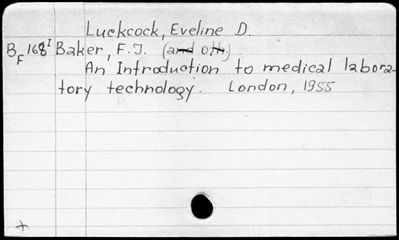 Luckcock, Eveline D.
BF 168I Baker, F.J. (and oth.)
An Introduction to medical labora-
tory technology. London, 1955